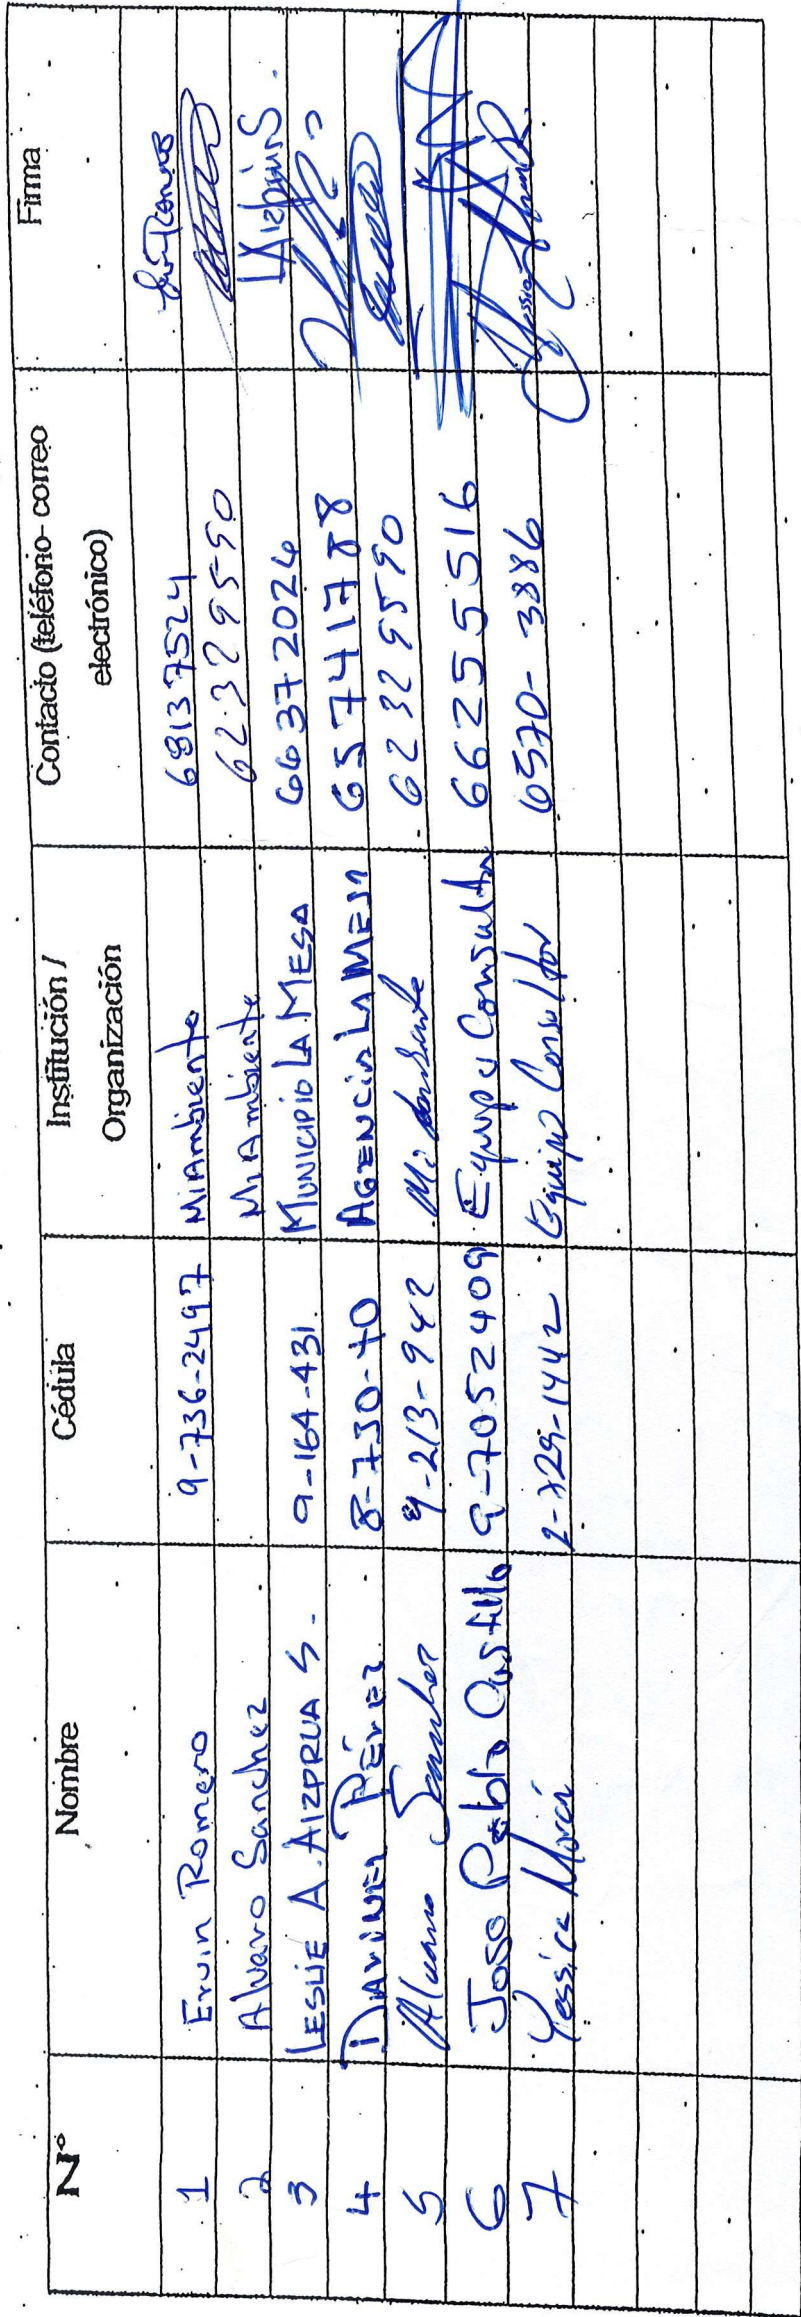 N° Nombre Cédula Institución / Organización Contacto (teléfono- correo electrónico) Firma
1 Ervin Romero 9-736-2497 MiAmbiente 68137524
2 Alvaro Sanchez MiAmbiente 62329590
3 LESLIE A. AIZPRUA S. 9-164-431. MUNICIPIO LA MESA 66372024 LAizpruaS.
4 PÉREZ 8-730-40 AGENCIA LA MESA 65741788
5 Alvaro Sanchez 9-213-942 Mi Ambiente 62329590
6 Jose Pablo Castillo 9-7052409 Equipo Consultor 66255516
7 Yessica Morán 2-729-1442 Equipo Consultor 6570-3886